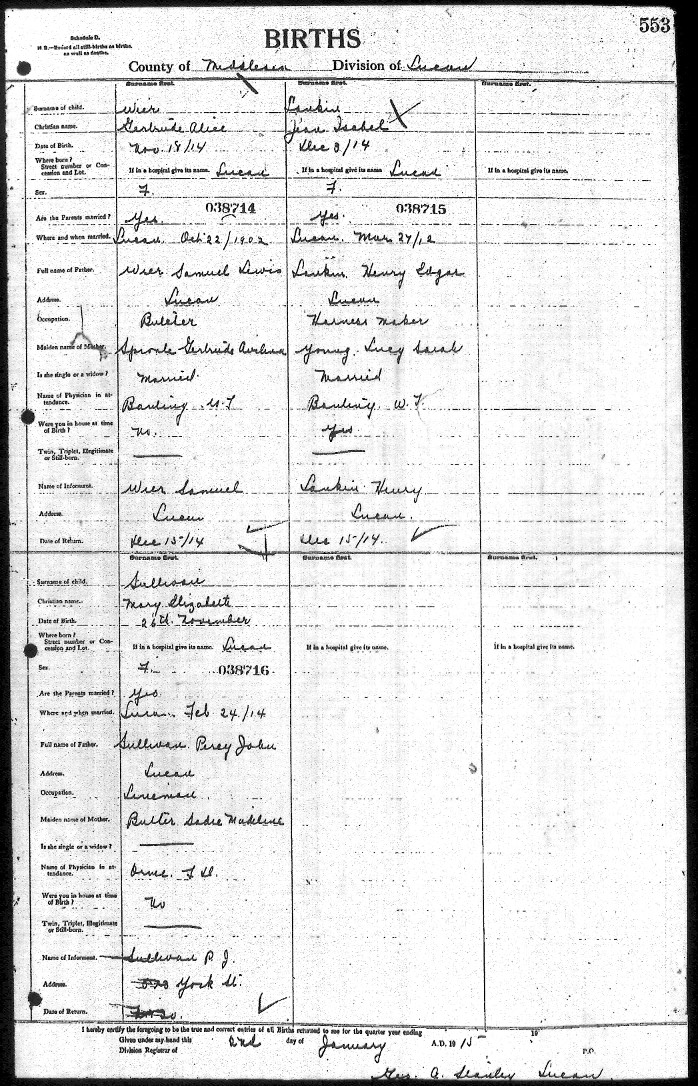 553
Schedule D.
N. B.—Record all still-births as births, as well as deaths.
BIRTHS
County of Middlesex Division of Lucan
Surname first. Surname first. Surname first.
Surname of child. Wier Lankin
Christian name. Gertrude Alice Jean Isabel
Date of Birth. Nov. 18/14 Dec 3/14
Where born? Street number or Concession and Lot. If in a hospital give its name. Lucan If in a hospital give its name. Lucan If in a hospital give its name.
Sex. F. F.
038714 038715
Are the Parents married? Yes Yes.
Where and when married. Lucan. Oct 22/1902 Lucan. Mar 27/12
Full name of Father. Wier Samuel Lewis Lankin. Henry Edgar
Address. Lucan Lucan
Occupation. Butcher Harness maker
Maiden name of Mother. Sproule Gertrude Young. Lucy Sarah
Is she single or a widow? Married. Married
Name of Physician in attendance. Banting W. T. Banting W. T.
Were you in house at time of Birth? No. Yes
Twin, Triplet, Illegitimate or Still-born.
Name of Informant. Wier Samuel Lankin Henry
Address. Lucan Lucan.
Date of Return. Dec 15/14 Dec 15/14.
Surname first. Surname first. Surname first.
Surname of child. Sullivan
Christian name. Mary Elizabeth
Date of Birth. 26th November
Where born? Street number or Concession and Lot. If in a hospital give its name. Lucan If in a hospital give its name. If in a hospital give its name.
Sex. F. 038716
Are the Parents married? Yes
Where and when married. Lucan. Feb 24/14
Full name of Father. Sullivan. Percy John
Address. Lucan
Occupation. Lineman.
Maiden name of Mother. Butler Sadie Madeline
Is she single or a widow?
Name of Physician in attendance. Orme.
Were you in house at time of Birth? No
Twin, Triplet, Illegitimate or Still-born.
Name of Informant. Sullivan P. J.
Address. York St.
Date of Return.
I hereby certify the foregoing to be the true and correct entries of all Births returned to me for the quarter year ending 19
Given under my hand this 2nd day of January A.D. 1915
Division Registrar of P.O.
Geo. A. Stanley Lucan